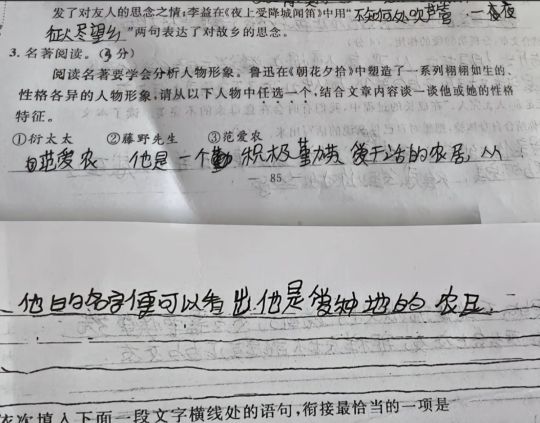 发了对友人的思念之情;李益在《夜上受降城闻笛》中用"不知何处吹芦管,一夜
征人尽望乡"两句表达了对故乡的思念。
3. 名著阅读。(3分)
阅读名著要学会分析人物形象。鲁迅在《朝花夕拾》中塑造了一系列栩栩如生的、
性格各异的人物形象,请从以下人物中任选一个,结合文章内容谈一谈他或她的性格
特征。
①衍太太 ②藤野先生 ③范爱农
范爱农 他是一个 积极 爱干活的农民,从
— 85 —
他的名字便可以看出他是爱种地的农民.
依次填入下面一段文字横线处的语句,衔接最恰当的一项是